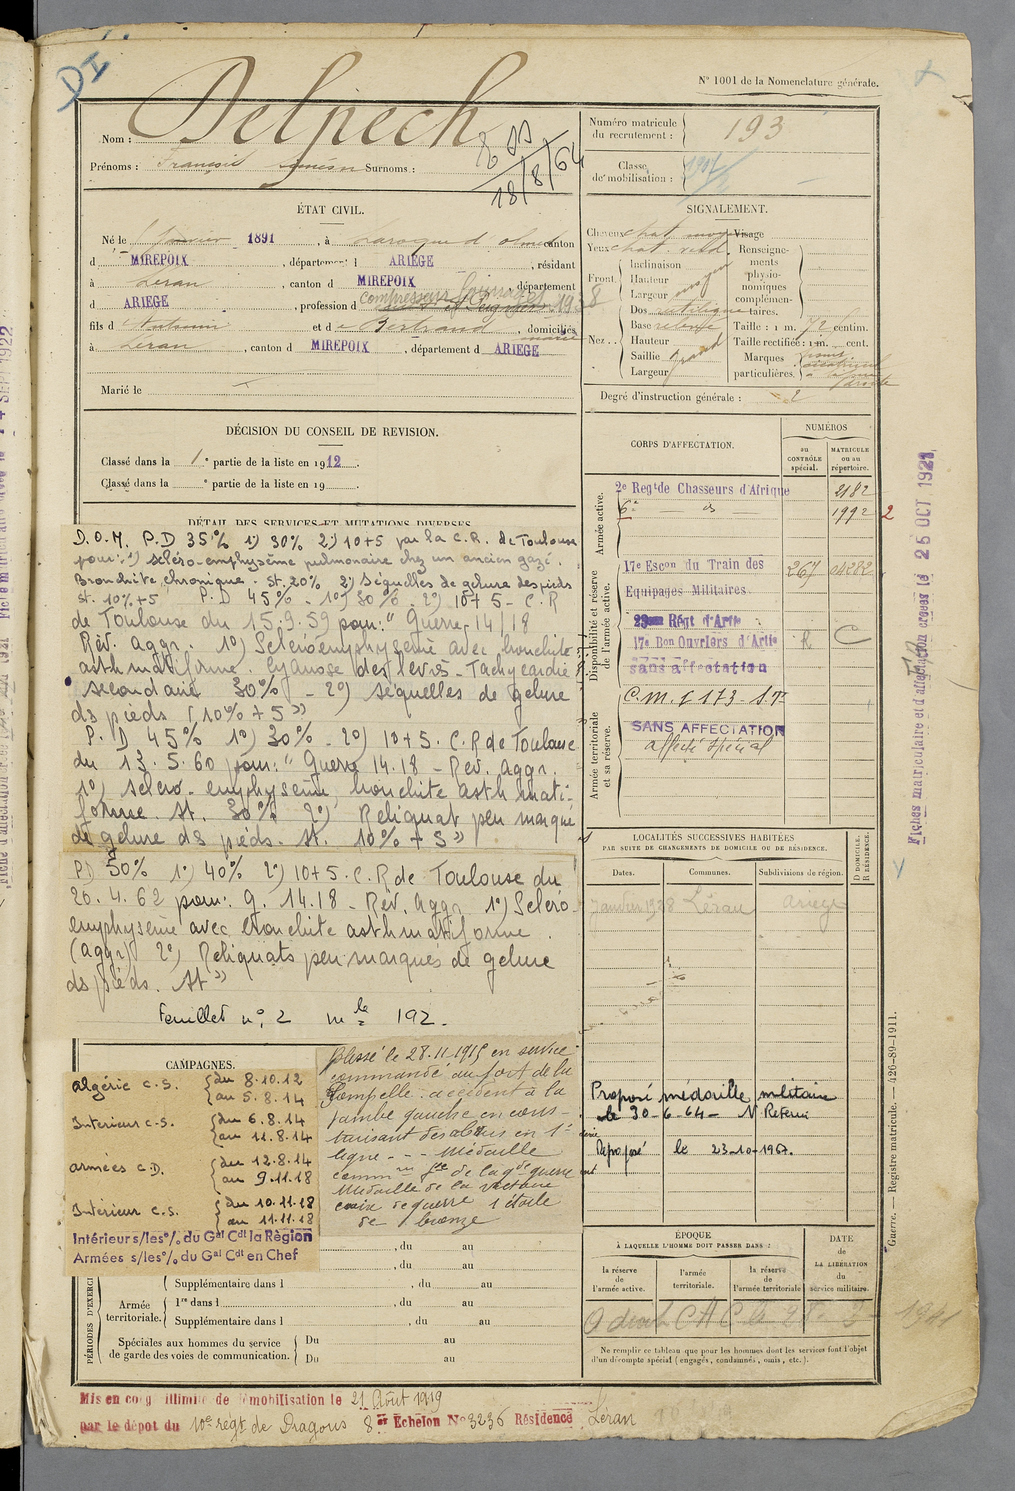 N° 1001 de la Nomenclature générale.
Nom : Delpech
Prénoms : François Surnoms :
18/8/64
Numéro matricule du recrutement : 193
Classe de mobilisation :
ÉTAT CIVIL.
Né le janvier 1891, à Laroque d'olmes canton
d MIREPOIX, département d ARIEGE, résidant
à Léran, canton d MIREPOIX, département
d ARIEGE, profession d
fils d et de Bertrand, domiciliés
à Léran, canton d MIREPOIX, département d ARIEGE
Marié le
SIGNALEMENT.
Cheveux chat. moy Visage
Yeux chat. verd. Renseignements physionomiques complémentaires.
Front. Inclinaison
Hauteur
Largeur
Nez. Dos rectiligne
Base relevée
Hauteur
Saillie grand
Largeur
Taille : 1 m. 72 centim.
Taille rectifiée : 1 m. cent.
Marques particulières.
Degré d'instruction générale : 2
DÉCISION DU CONSEIL DE REVISION.
Classé dans la 1e partie de la liste en 1912.
Classé dans la e partie de la liste en 19
DÉTAIL DES SERVICES ET MUTATIONS DIVERSES
D.O.M. P.D 35% 1°) 30% 2°) 10+5 par la C.R. de Toulouse
pour: 1°) scléro-emphysème pulmonaire chez un ancien gazé.
Bronchite chronique. st. 20% 2°) Séquelles de gelure des pieds
st. 10%+5 P.D 45% - 1°) 30% - 2°) 10+5 - C.R
de Toulouse du 15.9.59 pour: "Guerre 14/18
Rév. Aggr. 1°) Scléroemphysème avec bronchite
asthmatiforme. Cyanose des lèvres - Tachycardie
secondaire 30% - 2°) séquelles de gelure
ds pieds (10% + 5"
P.D 45% 1°) 30% - 2°) 10+5. C.R de Toulouse
du 13.5.60 pour: "Guerre 14.18 - Rev. Aggr.
1°) scléro-emphysème, bronchite asthmati-
forme. st. 30% 2°) Reliquat peu marqué
de gelure ds pieds. st. 10% + 5"
PD 50% 1°) 40% 2°) 10+5. C.R de Toulouse du
26.4.62 pour: g. 14.18 - Rev. Aggr 1°) Scléro-
emphysème avec bronchite asthmatiforme.
(aggr) 2°) Reliquats peu marqués de gelure
ds pieds. st"
Feuillet n° 2 mle 192.
CORPS D'AFFECTATION.
NUMÉROS
au CONTRÔLE spécial.
MATRICULE ou au répertoire.
Armée active.
2e Regt de Chasseurs d'Afrique 2182
6e 1992 2
Disponibilité et réserve de l'armée active.
17e Escon du Train des 267 04282
Equipages Militaires
Régt d'Artie
17e Bon Ouvriers d'Artie R C
sans affectation
Armée territoriale et sa réserve.
C.M. f 173
SANS AFFECTATION
affecté spécial
LOCALITÉS SUCCESSIVES HABITÉES
PAR SUITE DE CHANGEMENTS DE DOMICILE OU DE RÉSIDENCE.
Dates. Communes. Subdivisions de région.
D DOMICILE. R RÉSIDENCE.
Janvier 1928 Léran Ariège
Proposé médaille militaire
le 30-6-64
Reproposé le 23-10-1967.
CAMPAGNES.
Algérie C.S. du 8.10.12
au 5.8.14
Intérieur C.S. du 6.8.14
au 11.8.14
Armées C.D. du 12.8.14
au 9.11.18
Intérieur C.S. du 10.11.18
au 11.11.18
Intérieur s/les o/o du Gal Cdt la Région
Armées s/les o/o du Gal Cdt en Chef
Blessé le 28.11.1915 en service
commandé au fort de la
Pompelle. accident à la
jambe gauche en cons-
truisant des abris en 1ère
ligne - - - Médaille
commve fse de la gde guerre
Médaille de la victoire
croix de guerre 1 étoile
de bronze
, du au
, du au
Supplémentaire dans l , du au
Armée territoriale. 1re dans l , du au
Supplémentaire dans l , du au
Spéciales aux hommes du service de garde des voies de communication. Du au
Du au
ÉPOQUE
À LAQUELLE L'HOMME DOIT PASSER DANS :
la réserve de l'armée active.
l'armée territoriale.
la réserve de l'armée territoriale
DATE de LA LIBÉRATION du service militaire.
1941
Ne remplir ce tableau que pour les hommes dont les services font l'objet
d'un décompte spécial (engagés, condamnés, omis, etc.).
Mis en cong illimité de démobilisation le 21 Août 1919
par le dépôt du 10e régt de Dragons 8e Echelon N° 3236 Résidence Léran
Fiches matriculaire et d'affectation créées le 25 OCT. 1921
Guerre. — Registre matricule. — 426-89-1911.